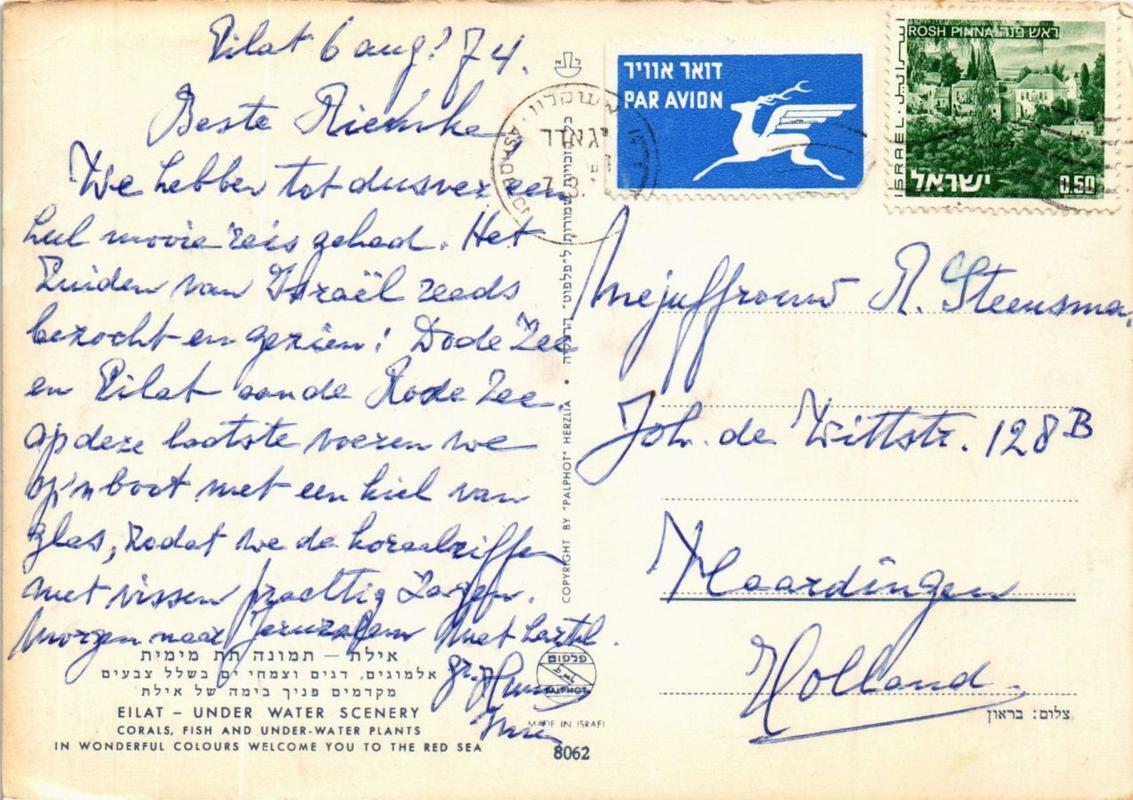 Eilat 6 aug? 74.
Beste Riemke,
We hebben tot dusver een
heel mooie reis gehad. Het
Zuiden van Israël reeds
bezocht en gezien: Dode Zee
en Eilat aan de Rode Zee.
op deze laatste voeren we
op 'n boot met een kiel van
glas, zodat we de koraalriffen
met vissen prachtig zagen.
Morgen naar Jeruzalem Met hartel.
gr.
אילת – תמונה תת מימית
אלמוגים, דגים וצמחי ים בשלל צבעים
מקדמים פניך בימה של אילת
EILAT – UNDER WATER SCENERY
CORALS, FISH AND UNDER-WATER PLANTS
IN WONDERFUL COLOURS WELCOME YOU TO THE RED SEA
כל הזכויות שמורות ל"פלפוט" הרצליה • COPYRIGHT BY "PALPHOT" HERZLIA
פלפוט
PALPHOT
MADE IN ISRAEL
8062
דואר אוויר
PAR AVION
אשקלון
7.8.
ROSH PINNA ראש פנה
ISRAEL
ישראל
0.50
Mejuffrouw R. Steensma,
Joh. de Wittstr. 128B
Vlaardingen
Holland.
צלום: בראון